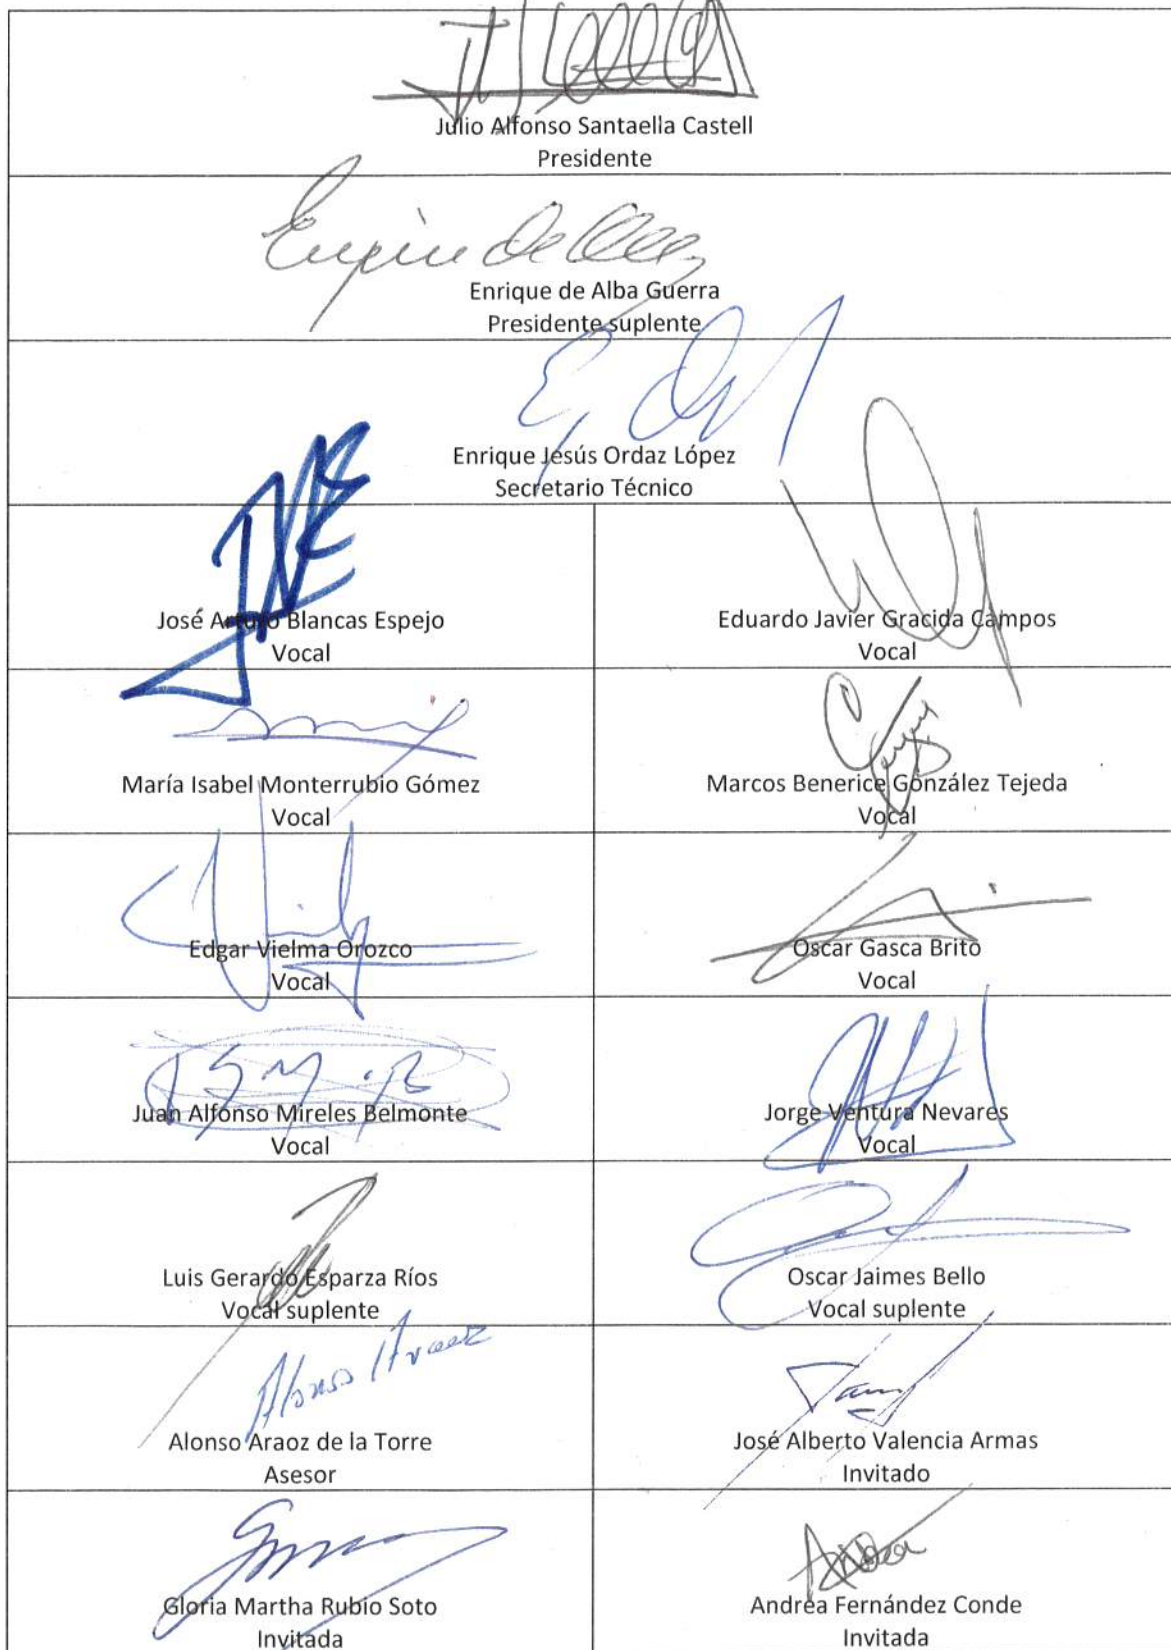 Julio Alfonso Santaella Castell
Presidente
Enrique de Alba Guerra
Presidente suplente
Enrique Jesús Ordaz López
Secretario Técnico
José Arturo Blancas Espejo
Vocal
Eduardo Javier Gracida Campos
Vocal
María Isabel Monterrubio Gómez
Vocal
Marcos Benerice González Tejeda
Vocal
Edgar Vielma Orozco
Vocal
Oscar Gasca Brito
Vocal
Juan Alfonso Mireles Belmonte
Vocal
Jorge Ventura Nevares
Vocal
Luis Gerardo Esparza Ríos
Vocal suplente
Oscar Jaimes Bello
Vocal suplente
Alonso Araoz
Alonso Araoz de la Torre
Asesor
José Alberto Valencia Armas
Invitado
Gloria Martha Rubio Soto
Invitada
Andrea
Andrea Fernández Conde
Invitada